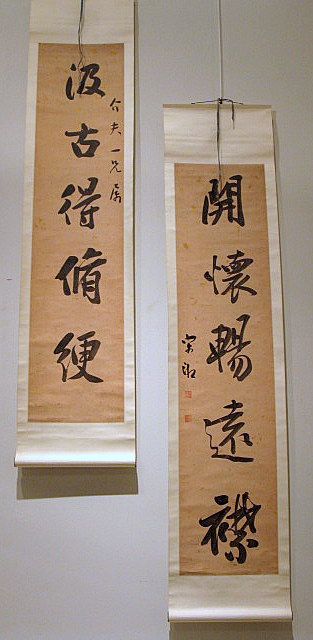 汲古得脩綆
介夫一兄屬
開懷暢遠襟